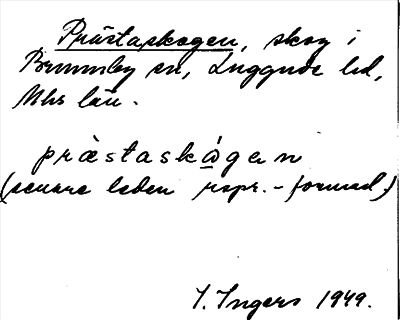 Prästaskogen, skog i
Brunnby sn, Luggude hd,
Mhs län.
præstaskågen
(senare leden rspr.-formad.)
I. Ingers 1949.